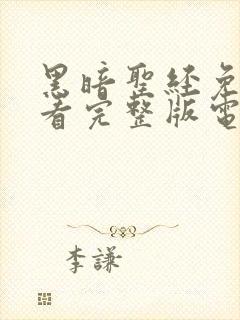 黑暗聖经免
看完整版電
李謙